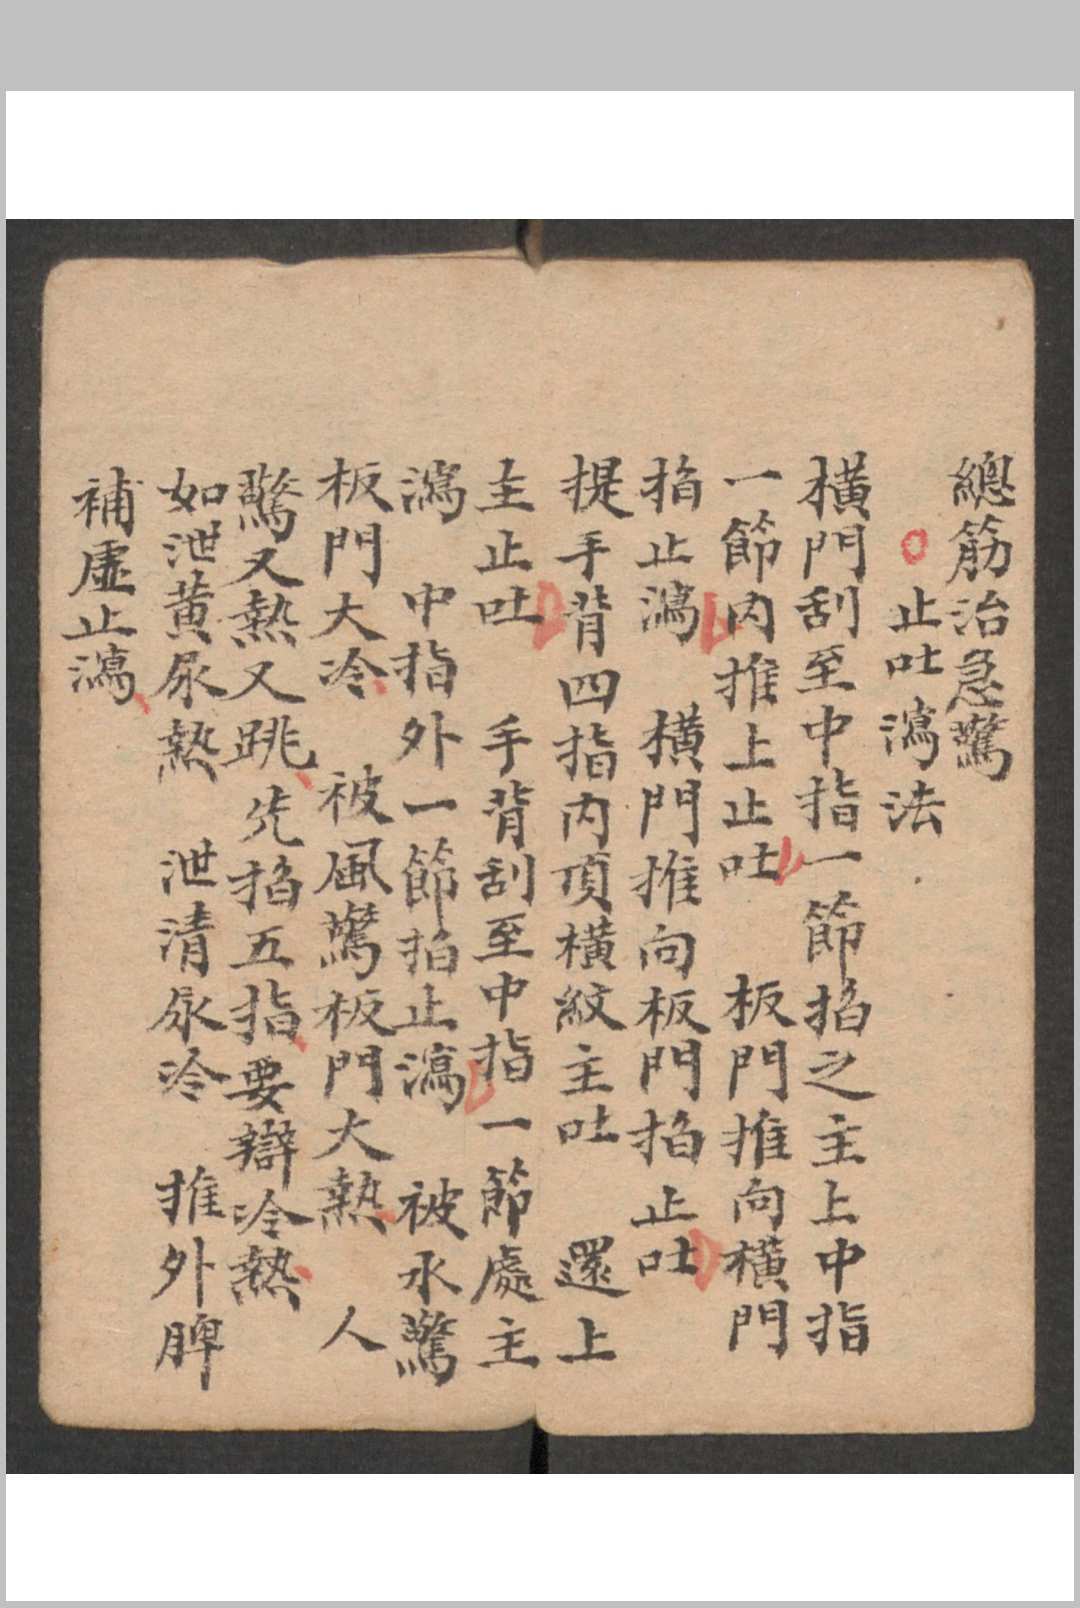 總筋治急驚
止吐瀉法
橫門刮至中指一節掐之主上中指
一節内推上止吐 板門推向橫門
掐止瀉 橫門推向板門掐止吐
提手背四指内頂橫紋主吐 還上
主止吐 手背刮至中指一節處主
瀉 中指外一節掐止瀉 被水驚
板門大冷 被風驚板門大熱 人
驚又熱又跳先掐五指要辯冷熱
如泄黃尿熱 泄清尿冷 推外脾
補虛止瀉